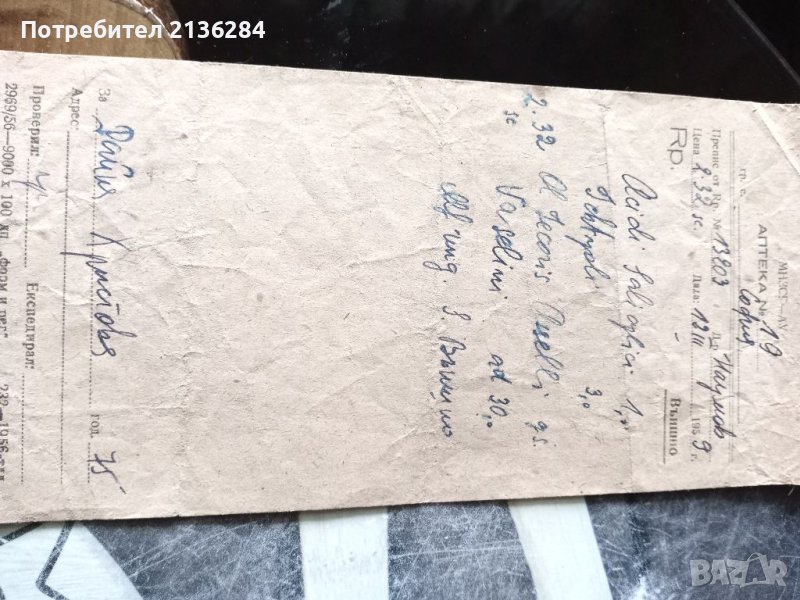 Потребител 2136284
МНЗСГ—АУ
АПТЕКА № 19
гр. с. София
Препис от Rp. № 13803 Д-р Наумов
Цена 2.32 sc. Дата: 12 III 1959 г.
Rp. Външно
Acidi Salicylici 1,0
Ichtyoli 3,0
2.32 Ol Jecoris Aselli q.s.
sc Vaselini ad 30,0
Mf ung. S. Външно
За Христова год. 75
Адрес
Проверил: Експедирал:
2969/56—9000 х 100 хп. „Форм и рег“ 232—1956
BAZAR